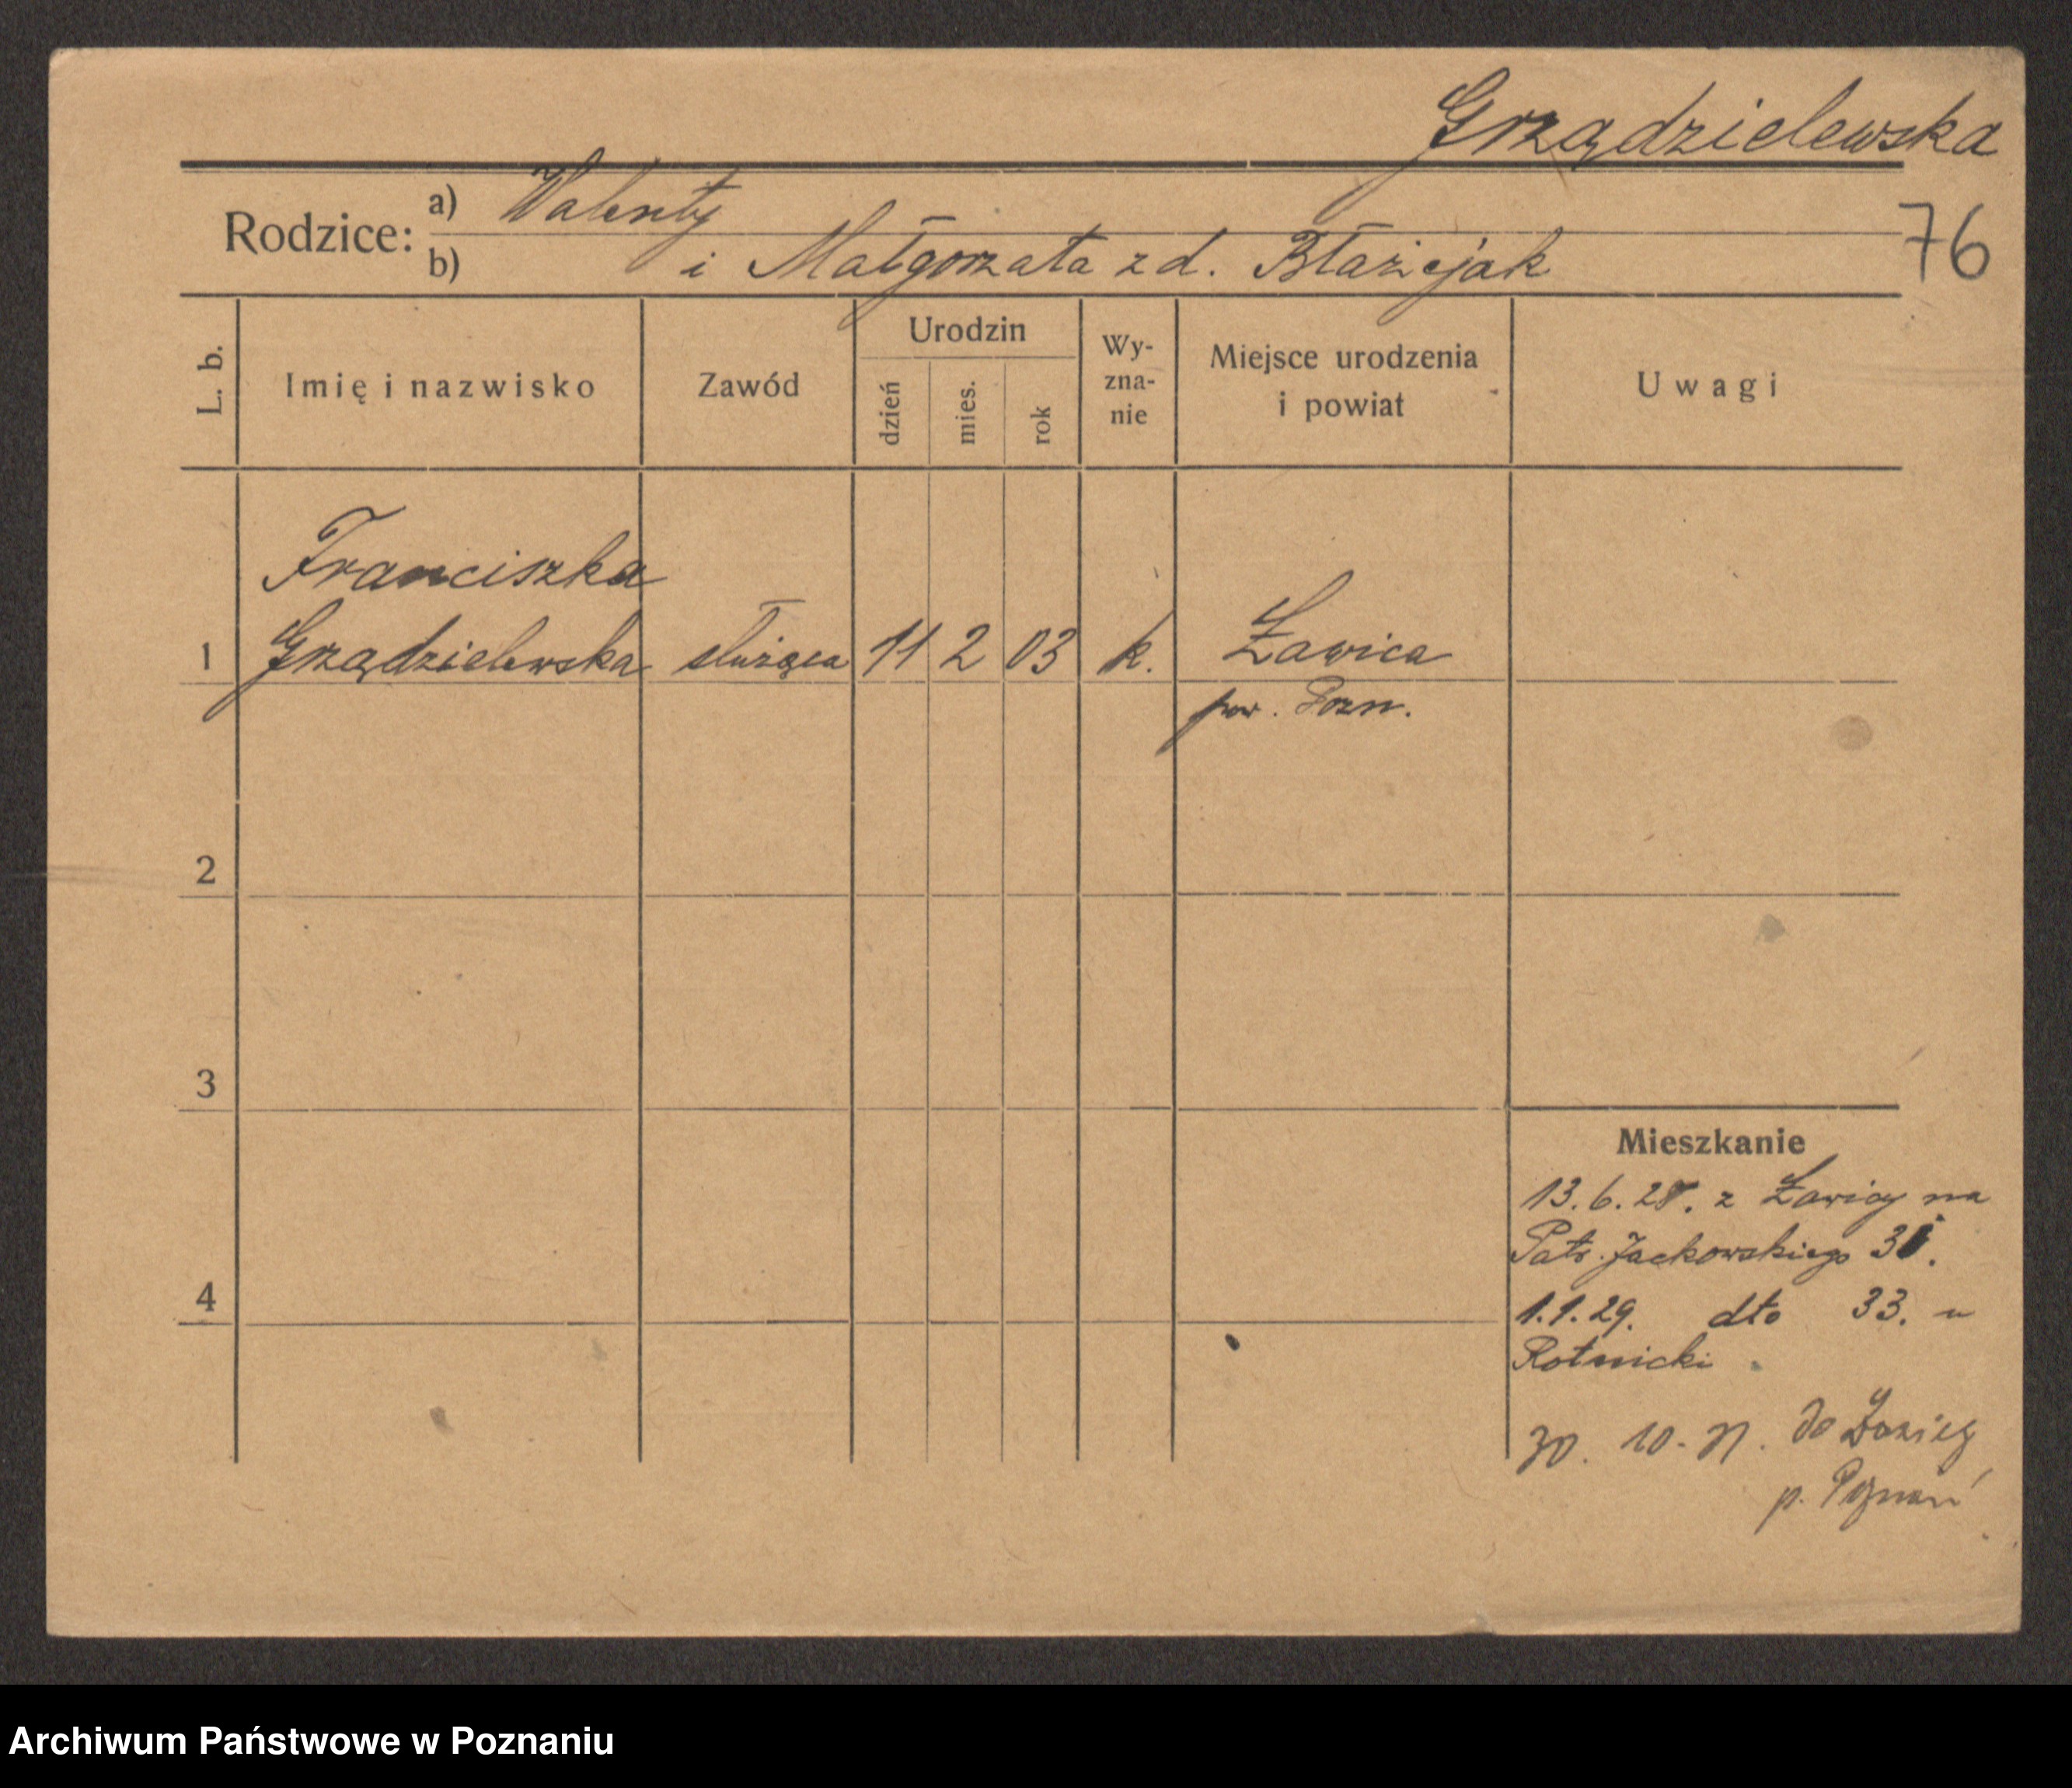 Grządzielewska
Rodzice: a) Walenty
b) i Małgorzata z d. Błażejak
76
L. b. Imię i nazwisko Zawód Urodzin dzień mies. rok Wy-zna-nie Miejsce urodzenia i powiat Uwagi
Franciszka
1 Grządzielewska służąca 11 2 03 k. Ławica
pow. Pozn.
2
3
4
Mieszkanie
13.6.28. z Ławicy na
Patr. Jackowskiego
1.1.29. dto 33. u
Rotnicki
30. 10. 31. do Ławicy
p. Poznań
Archiwum Państwowe w Poznaniu